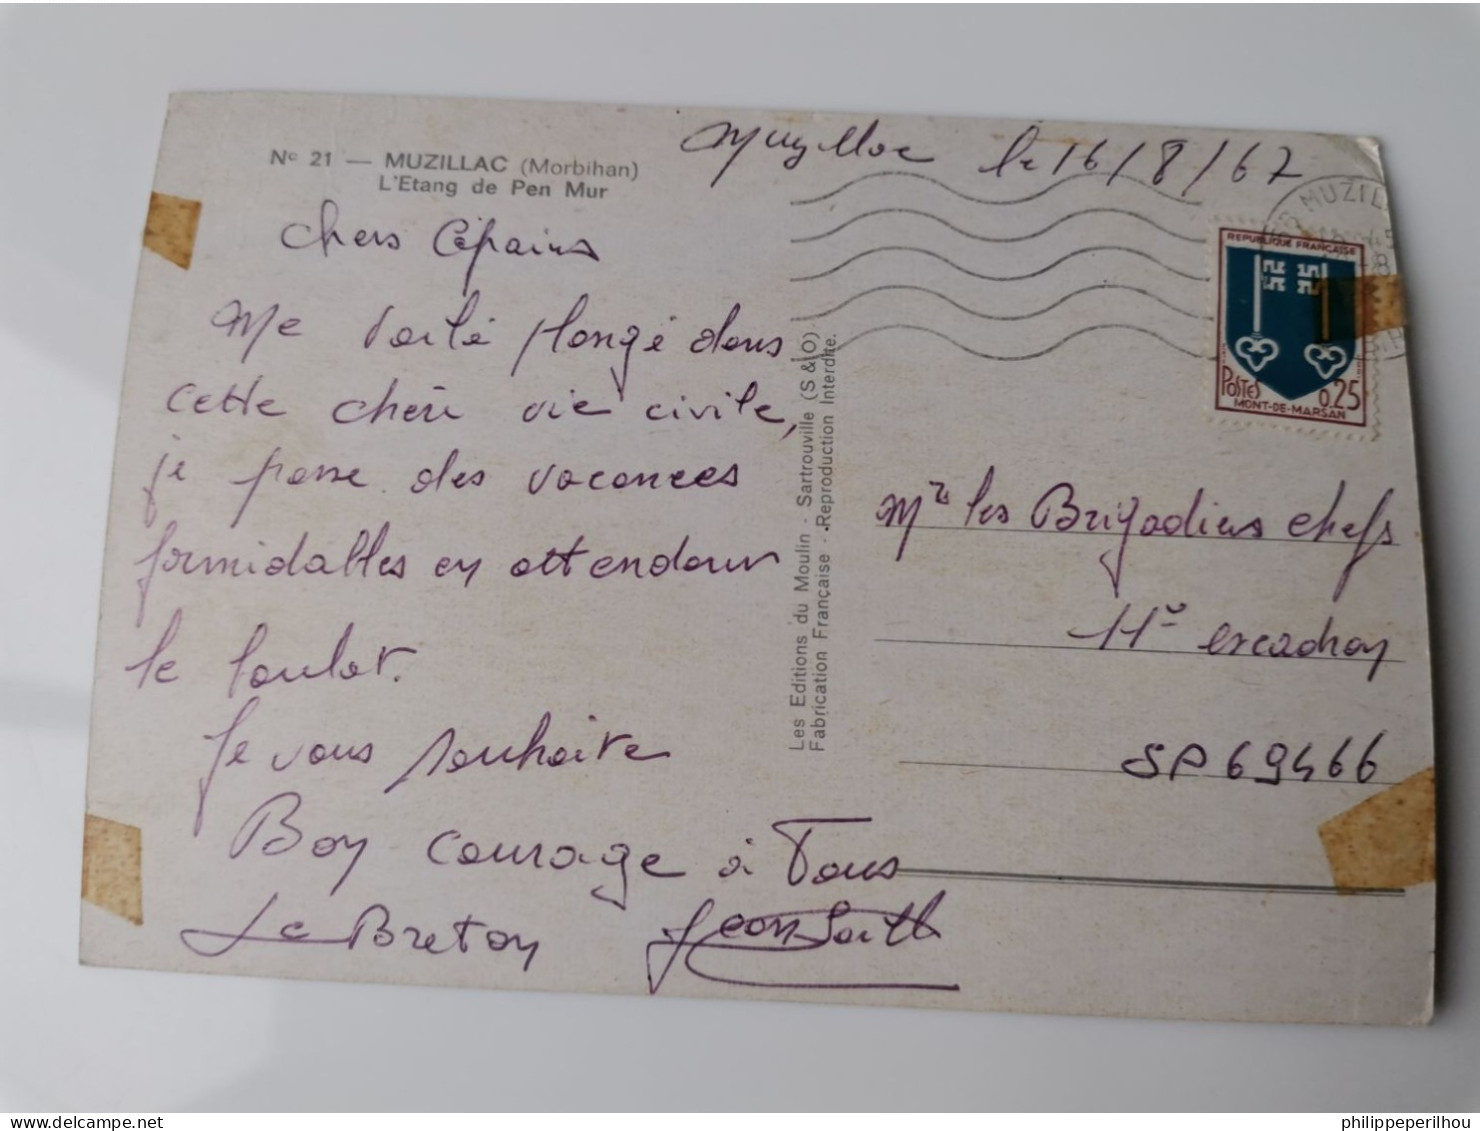 Nº 21 — MUZILLAC (Morbihan)
L'Etang de Pen Mur
Muzillac le 16/8/67
Chers Copains
Me voilà plongé dans
cette chère vie civile,
je passe des vacances
formidables en attendant
le boulot.
Je vous souhaite
Bon courage à Tous
Le Breton Jean
Les Editions du Moulin - Sartrouville (S & O)
Fabrication Française - Reproduction Interdite.
MUZILL
REPUBLIQUE FRANÇAISE
POSTES 0,25
MONT-DE-MARSAN
Mrs les Brigadiers chefs
11e escadron
SP 69466
philippeperilhou